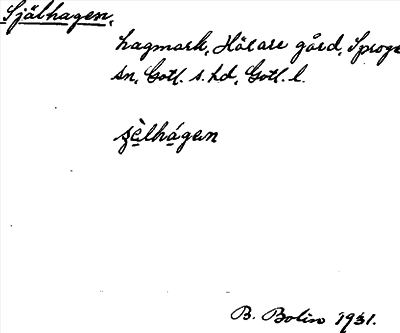 Själhagen,
hagmark, Hälare gård, Sproge
sn, Gotl. s. hd, Gotl. l.
sèlhágen
B. Bolin 1931.